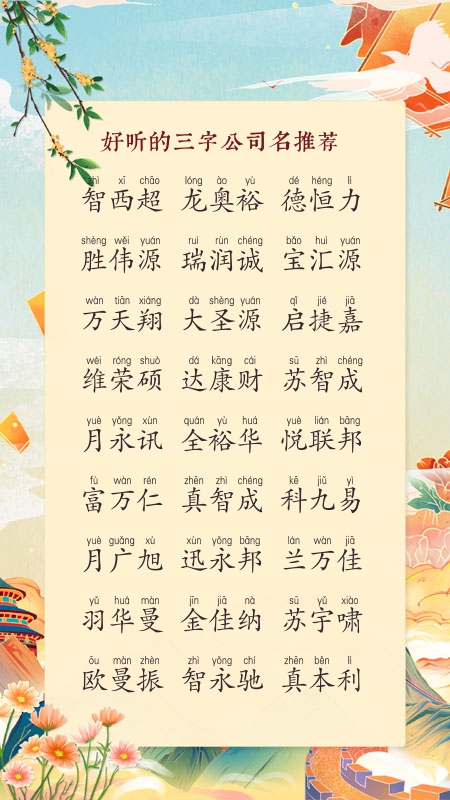 好听的三字公司名推荐
zhì xī chāo lóng ào yù dé héng lì
智西超 龙奥裕 德恒力
shèng wěi yuán ruì rùn chéng bǎo huì yuán
胜伟源 瑞润诚 宝汇源
wàn tiān xiáng dà shèng yuán qǐ jié jiā
万天翔 大圣源 启捷嘉
wéi róng shuò dá kāng cái sū zhì chéng
维荣硕 达康财 苏智成
yuè yǒng xùn quán yù huá yuè lián bāng
月永讯 全裕华 悦联邦
fù wàn rén zhēn zhì chéng kē jiǔ yì
富万仁 真智成 科九易
yuè guǎng xù xùn yǒng bāng lán wàn jiā
月广旭 迅永邦 兰万佳
yǔ huá màn jīn jiā nà sū yǔ xiào
羽华曼 金佳纳 苏宇啸
ōu màn zhèn zhì yǒng chí zhēn běn lì
欧曼振 智永驰 真本利